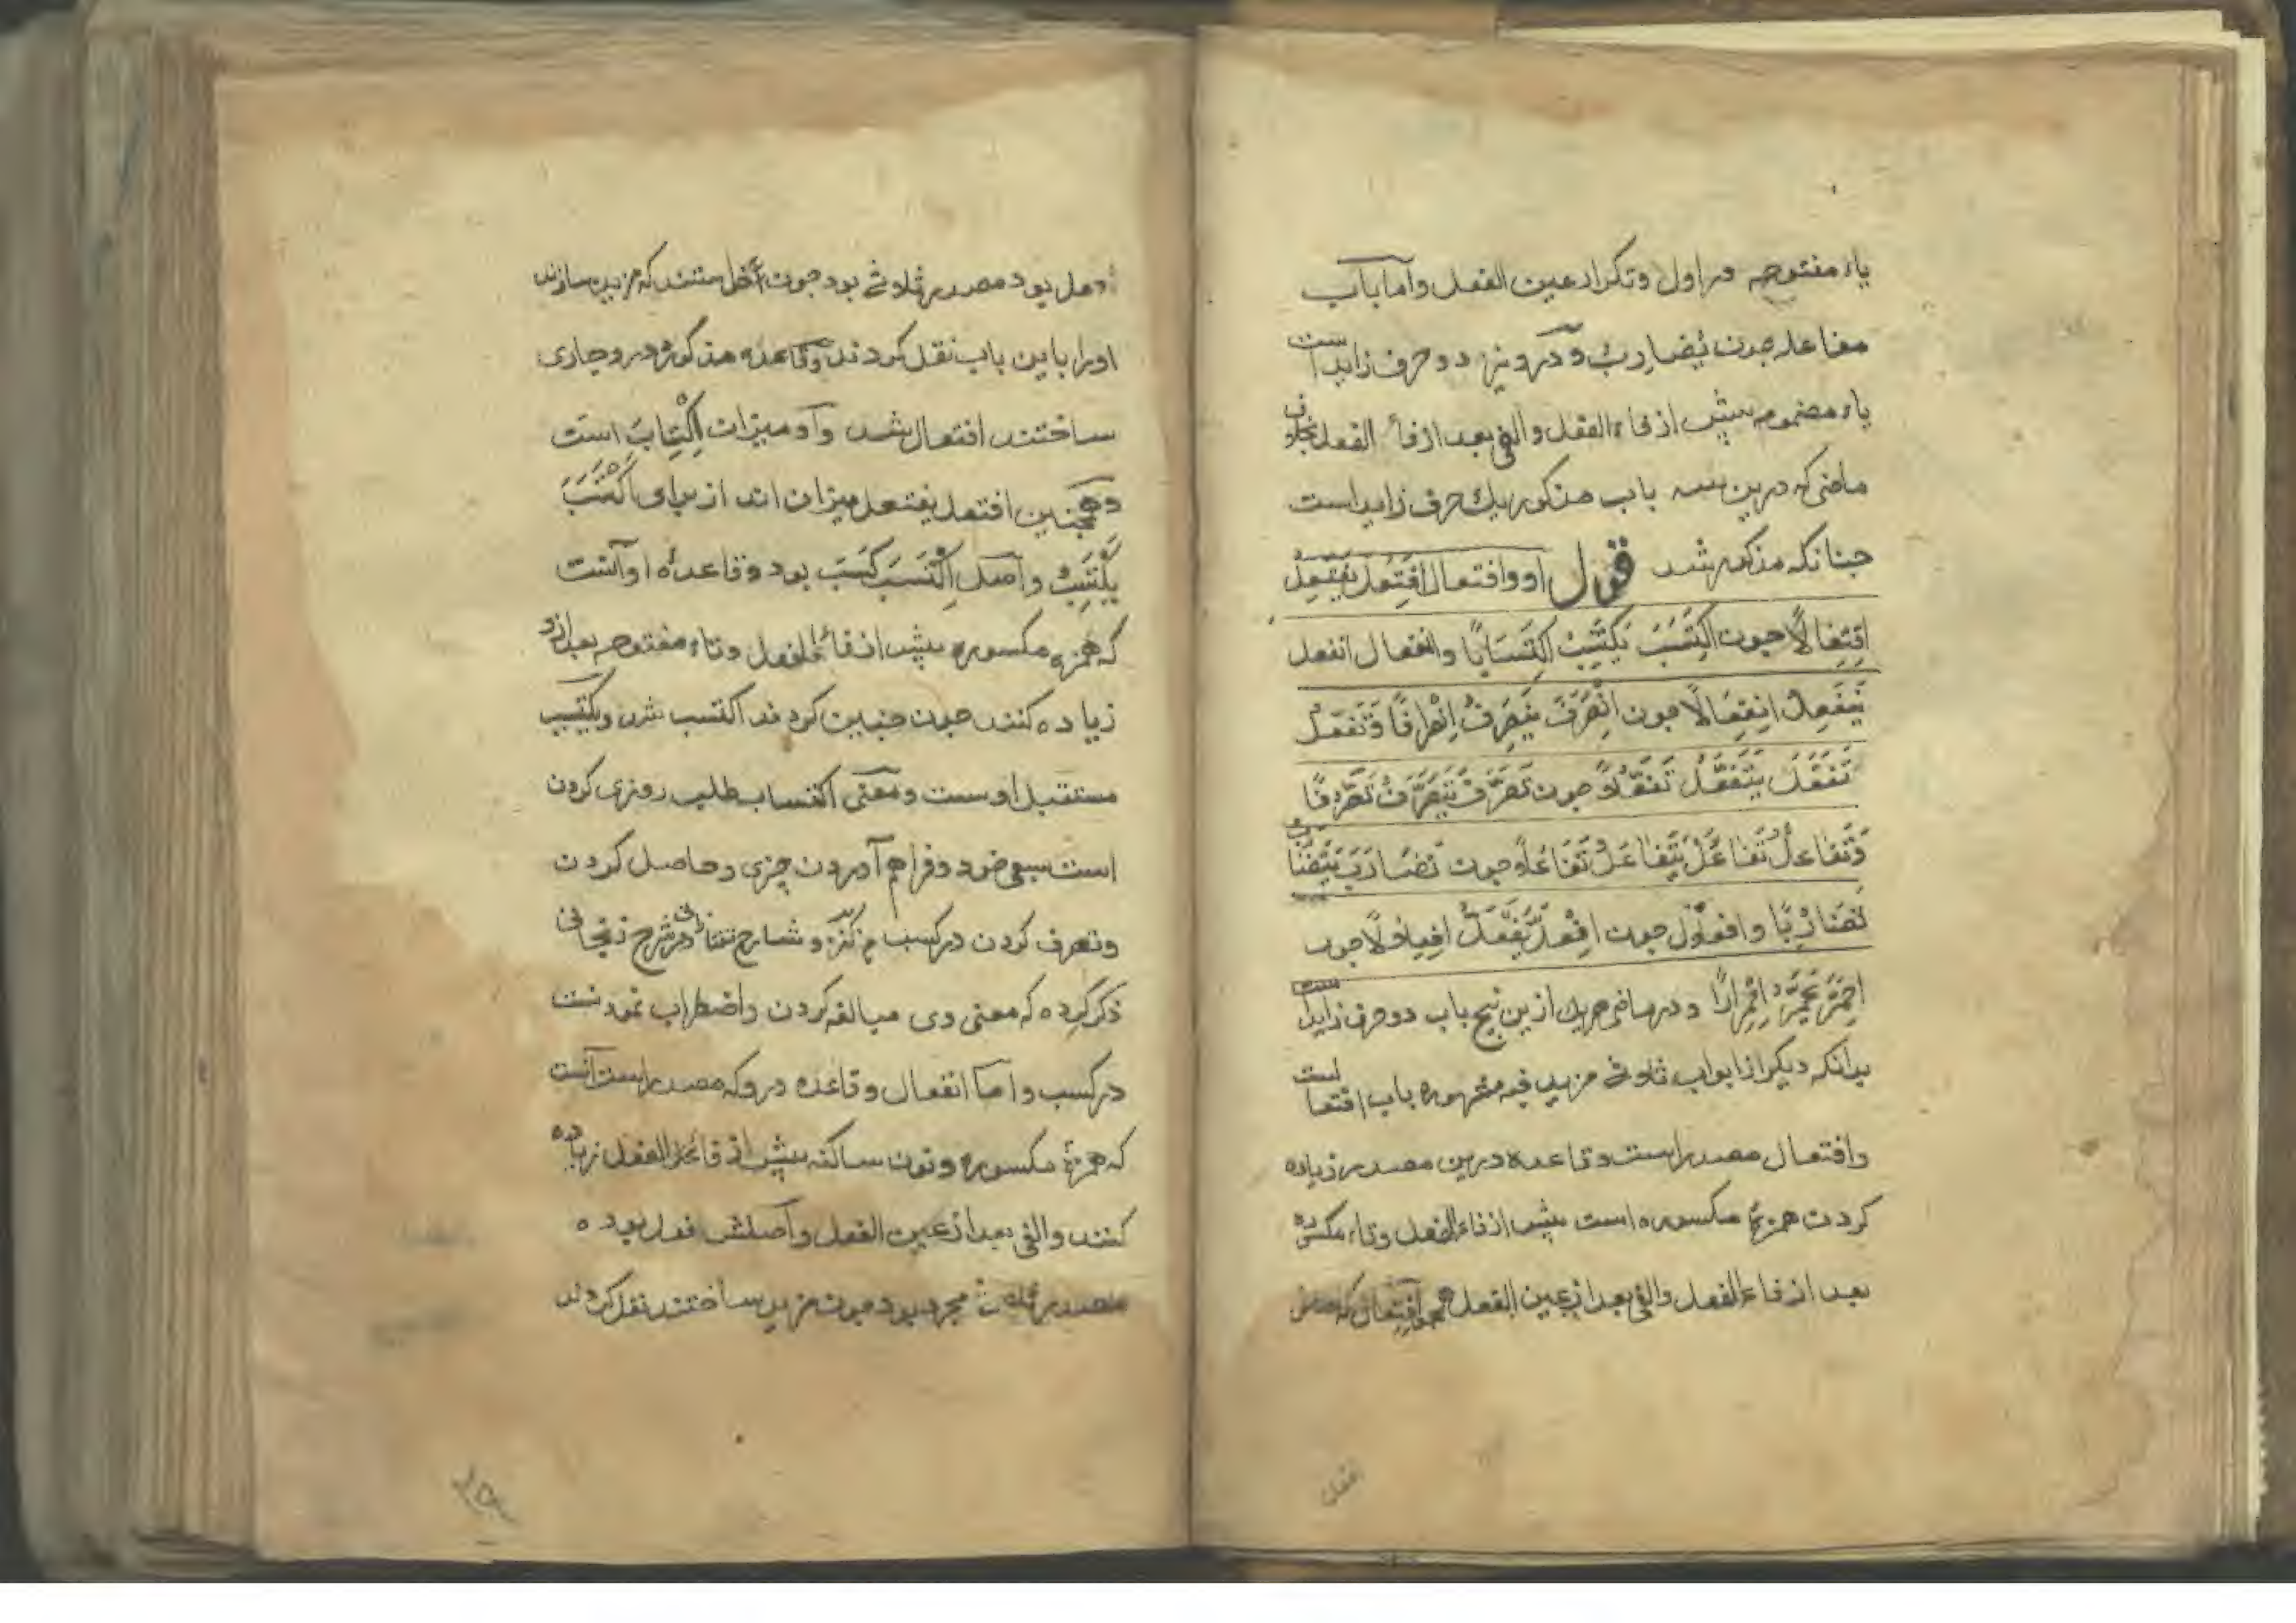 یاء مفتوحه در اول وتکرار عین الفعل واما باب
مفاعله چون یضارب ودرو نیز دو حرف زاید است
یاء مضموم پیش از فاء الفعل والفی بعد از فاء الفعل بخلاف
ماضی که درین سه باب مذکور یک حرف زاید است
چنانکه مذکور شد قول او وافتعال افتعل یفتعل
افتعالا چون اکتسب یکتسب اکتسابا وانفعال انفعل
ینفعل انفعالا چون انصرف ینصرف انصرافا وتفعل
تفعل یتفعل تفعلا چون تصرف یتصرف تصرفا
وتفاعل تفاعل یتفاعل تفاعلا چون تضارب یتضارب
تضاربا وافعلال چون افعل یفعل افعلالا چون
احمر یحمر احمرارا ودر ماضی هریک ازین پنج باب دو حرف زاید است
بدانکه دیگر از ابواب ثلاثی مزید فیه مشهوره باب افتعا است
وافتعال مصدر است وقاعده درین مصدر زیاده
کردن همزۀ مکسوره است پیش از فاء الفعل وتاء مکسوره
بعد از فاء الفعل والفی بعد از عین الفعل همچو افتعال که
افعل
بود مصدر ثلاثی بود چون خواستند که مزید سازند
اورا باین باب نقل کردند وقاعده مذکوره درو جاری
ساختند افتعال شد واو میزان اکتساب است
وهمچنین افتعل یفتعل میزان اند از برای اکتسب
یکتسب واصل اکتسب کسب بود وقاعدۀ او آنست
که همزه مکسوره پیش از فاء الفعل وتاء مفتوحه بعد ازو
زیاده کنند چون چنین کردند اکتسب شد ویکتسب
مستقبل اوست ومعنی اکتساب طلب روزی کردن
است بسعی خود وفراهم آوردن چیزی وحاصل کردن
وتصرف کردن در کسب وشارح تفتازانی در شرح زنجانی
ذکر کرده که معنی وی مبالغه کردن واضطراب نمودنست
در کسب واما انفعال وقاعده درو که مصدر است آنست
که همزۀ مکسوره ونون ساکنه پیش از فاء الفعل زیاده
کنند والفی بعد از عین الفعل واصلش فعل بوده
مصدر ثلاثی مجرد بود چون مزید ساختند نقل کردند